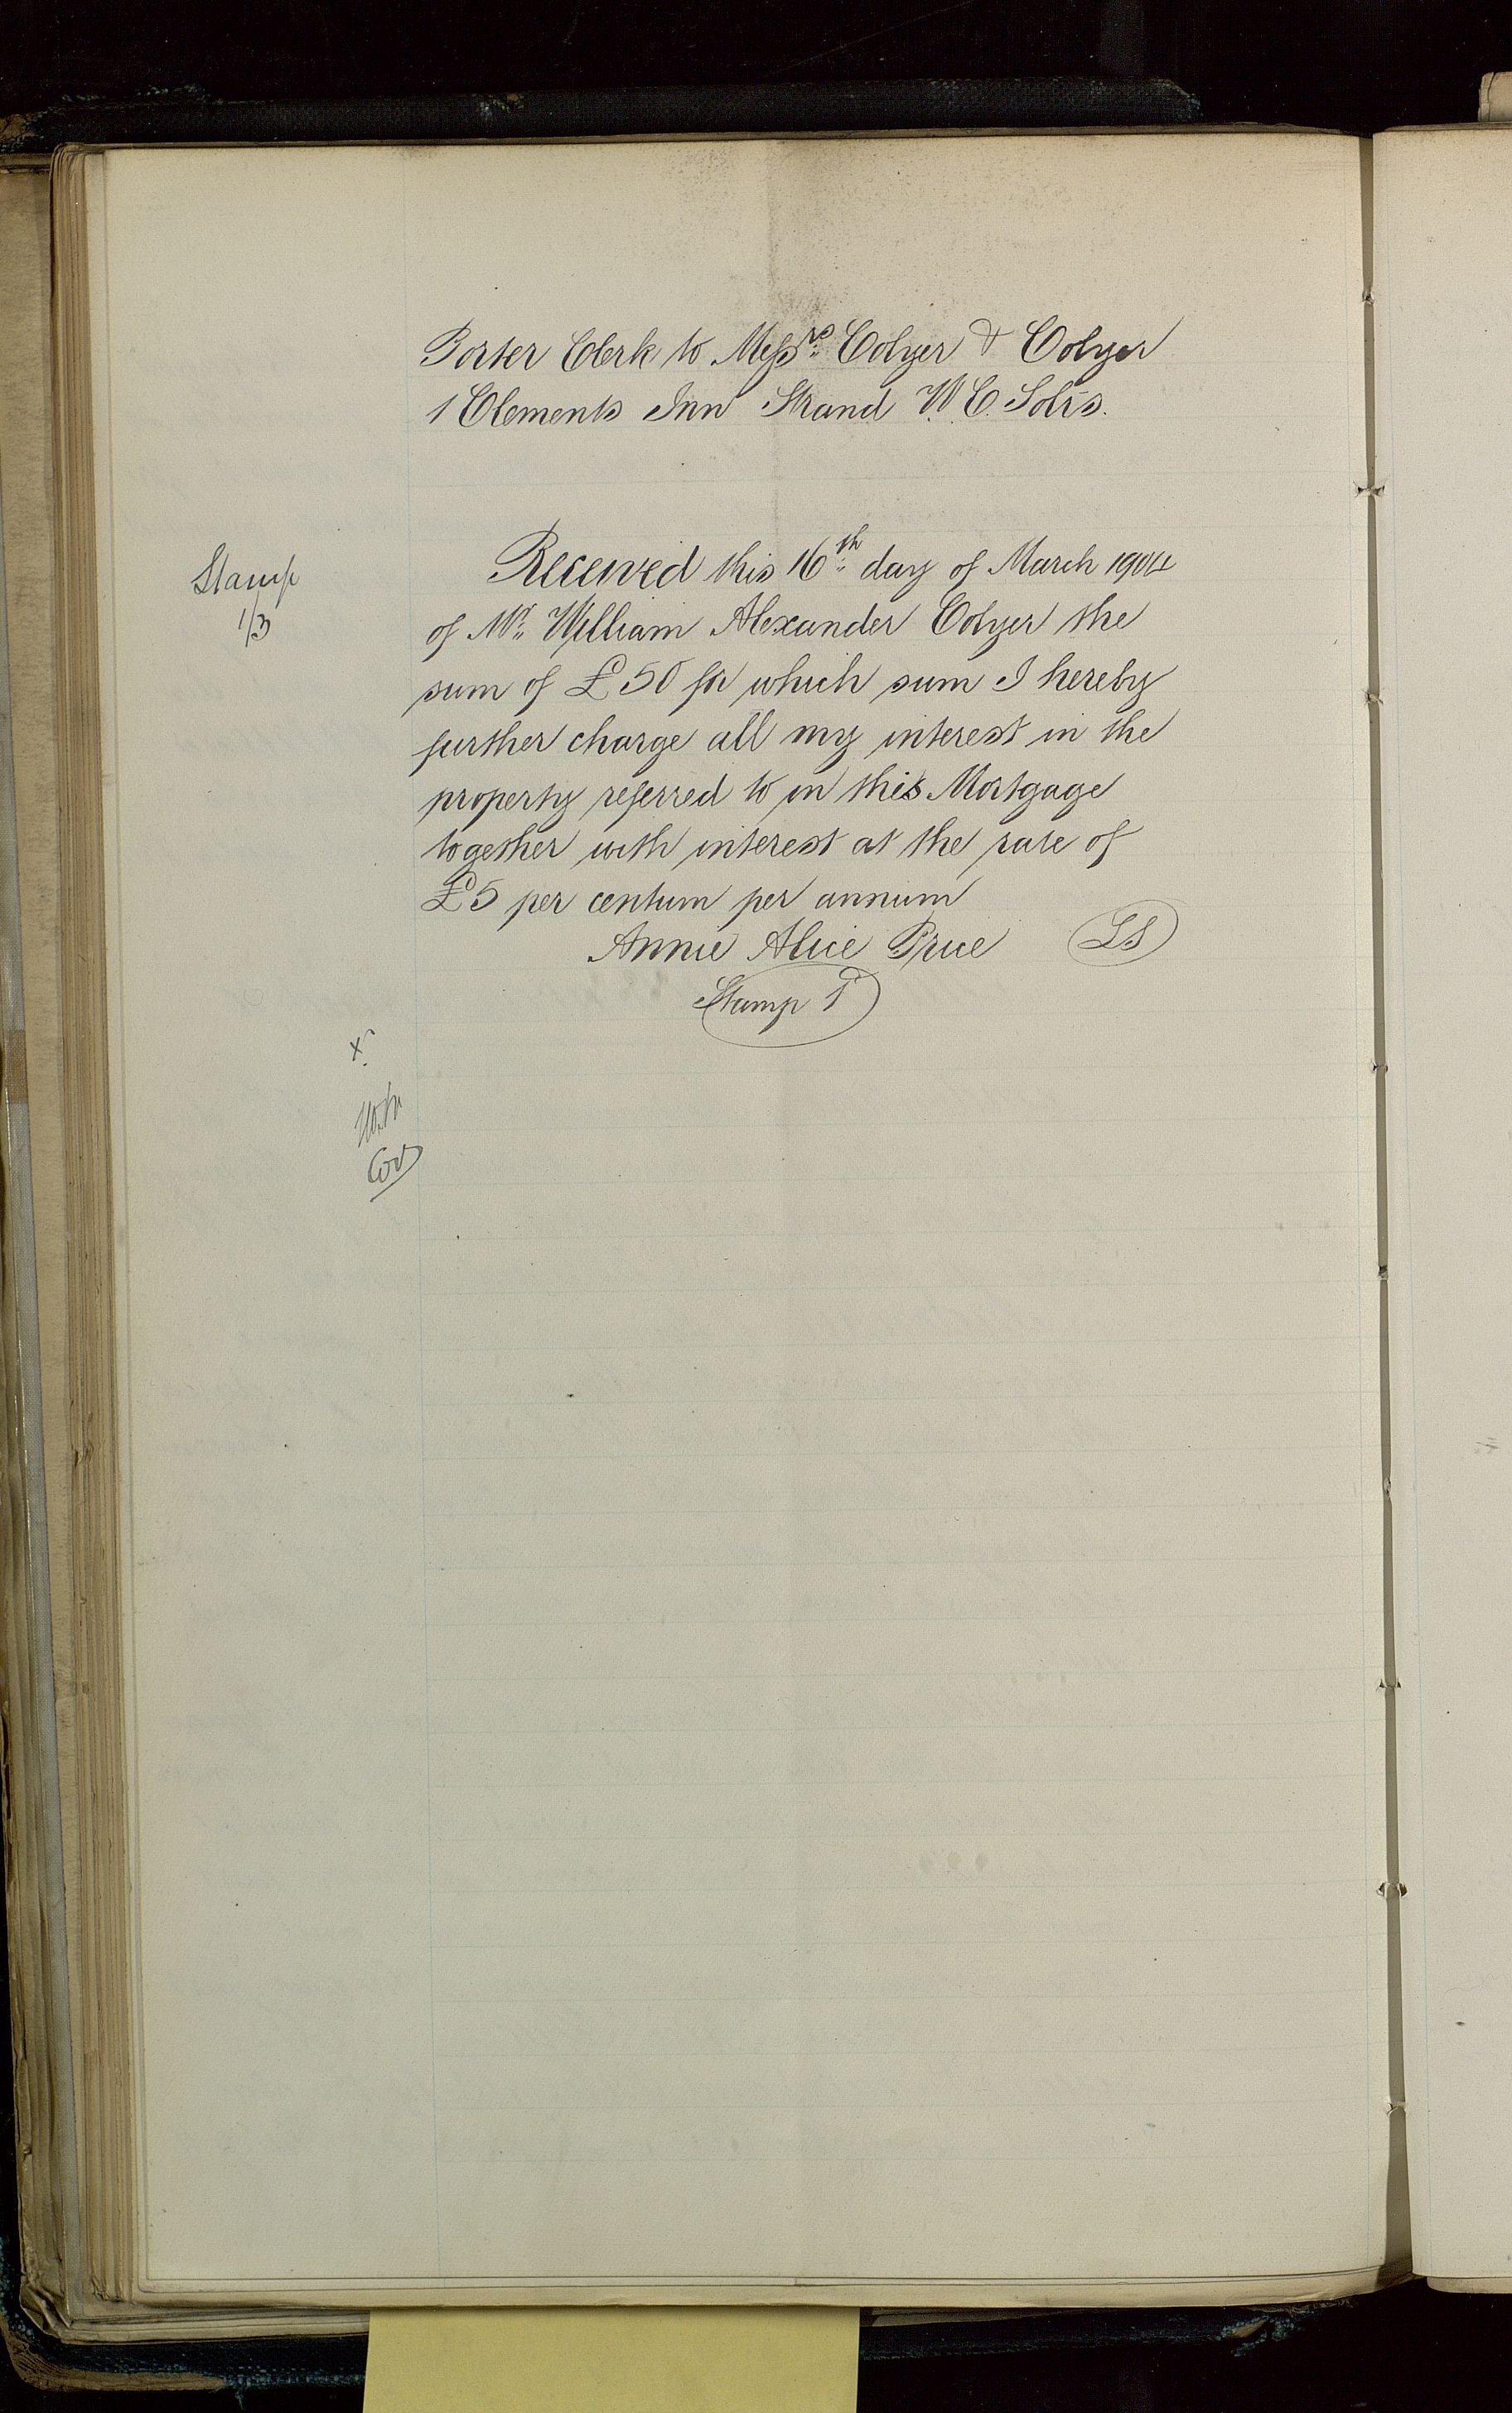 Porter Clerk to Messrs. Colyer & Colyer
1 Clements Inn Strand W.C. Solrs.
Stamp
1/3
Received this 16th day of March 1904
of Mr. William Alexander Colyer the
sum of £50 for which sum I hereby
further charge all my interest in the
property referred to in this Mortgage
together with interest at the rate of
£5 per centum per annum
Annie Alice Price LS
Stamp
x